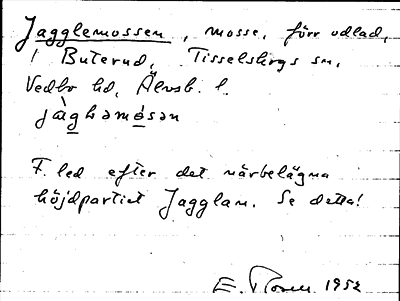 Jagglemossen, mosse, förr odlad,
i Buterud, Tisselskogs sn,
Vedbo hd, Älvsb. l.
jàghəmósən
F. led efter det närbelägna
höjdpartiet Jagglan. Se detta!
E. 1952